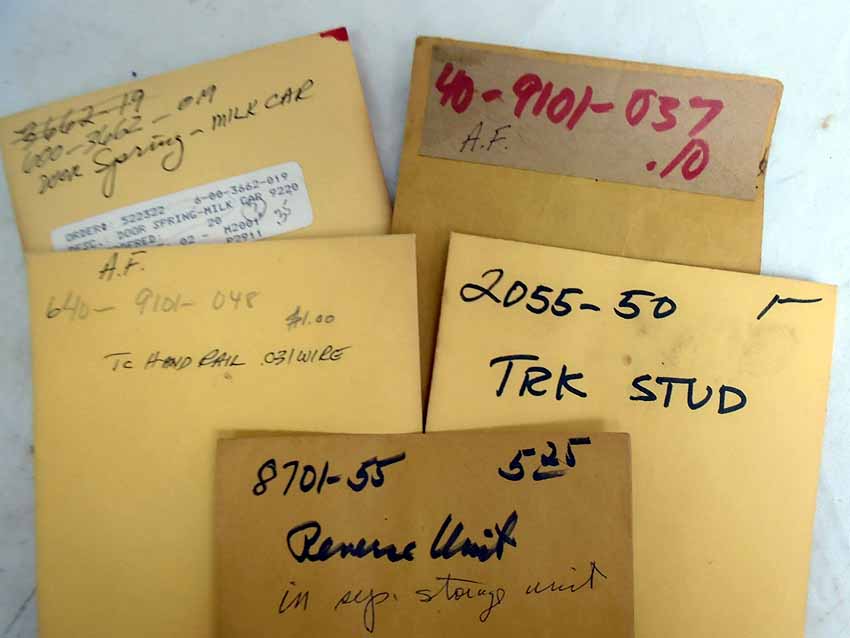 3662-19
600-3662-019
Door Spring - MILK CAR
ORDER#: 522322 6-00-3662-019
DESC.: DOOR SPRING-MILK CAR 9220
20
02 - M2001
P2911
35
40-9101-037
A.F.
.10
A.F.
640-9101-048
$1.00
TC HAND RAIL .031 WIRE
2055-50
TRK STUD
8701-55 5.25
Reverse Unit
in sep. storage unit